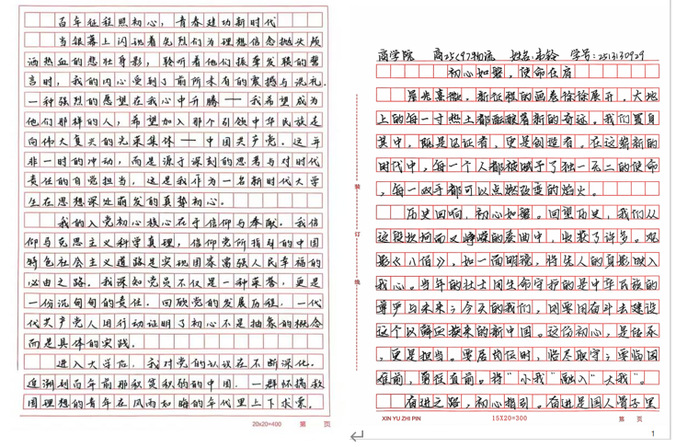 百年征程照初心，青春建功新时代
当银幕上闪现着先烈们为理想信念抛头颅
洒热血的悲壮身影，聆听着他们振聋发聩的誓
言时，我的内心受到了前所未有的震撼与洗礼。
一种强烈的愿望在我心中升腾——我希望成为
他们那样的人，希望加入那个引领中华民族走
向伟大复兴的先锋集体——中国共产党。这并
非一时的冲动，而是源于深刻的思考与对时代
责任的自觉担当，这是我作为一名新时代大学
生在思想深处萌发的真挚初心。
我的入党初心核心在于信仰与奉献。我信
仰马克思主义科学真理，信仰党所指引的中国
特色社会主义道路是实现国家富强人民幸福的
必由之路。我深知党员不仅是一种荣誉，更是
一份沉甸甸的责任，回顾党的发展历程，一代
代共产党人用行动证明了初心不是抽象的概念
而是具体的实践。
进入大学后，我对党的认识在不断深化。
追溯到百年前那积贫积弱的中国，一群怀揣救
国理想的青年在风雨如晦的年代里上下求索。
20x20=400 第 页
商学院 物流 姓名: 学号:2513130929
初心如磐，使命在肩
星光熹微，新征程的画卷徐徐展开，大地
上的每一寸热土都酝酿着新的奇迹。我们置身
其中，既是见证者，更是创造者。在这崭新的
时代中，每一个人都被赋予了独一无二的使命
，每一双手都可以点燃改变的焰火。
历史回响，初心如磐。回望历史，我们从
这段坎坷而又峥嵘的乐曲中，收获了许多。观
影《八佰》，如一面明镜，将先人的身影映入
我心。当年的壮士用生命守护的是中华民族的
尊严与未来；今天的我们，则要用奋斗去建设
这个以鲜血换来的新中国。这份初心，是传承
，更是担当。要居岗位时，恪尽职守；要临困
难前，勇往直前。将“小我”融入“大我”。
奋进之路，初心指引。奋进是国人骨子里
装
订
线
XIN YU ZHI PIN 15X20=300 第 页
1